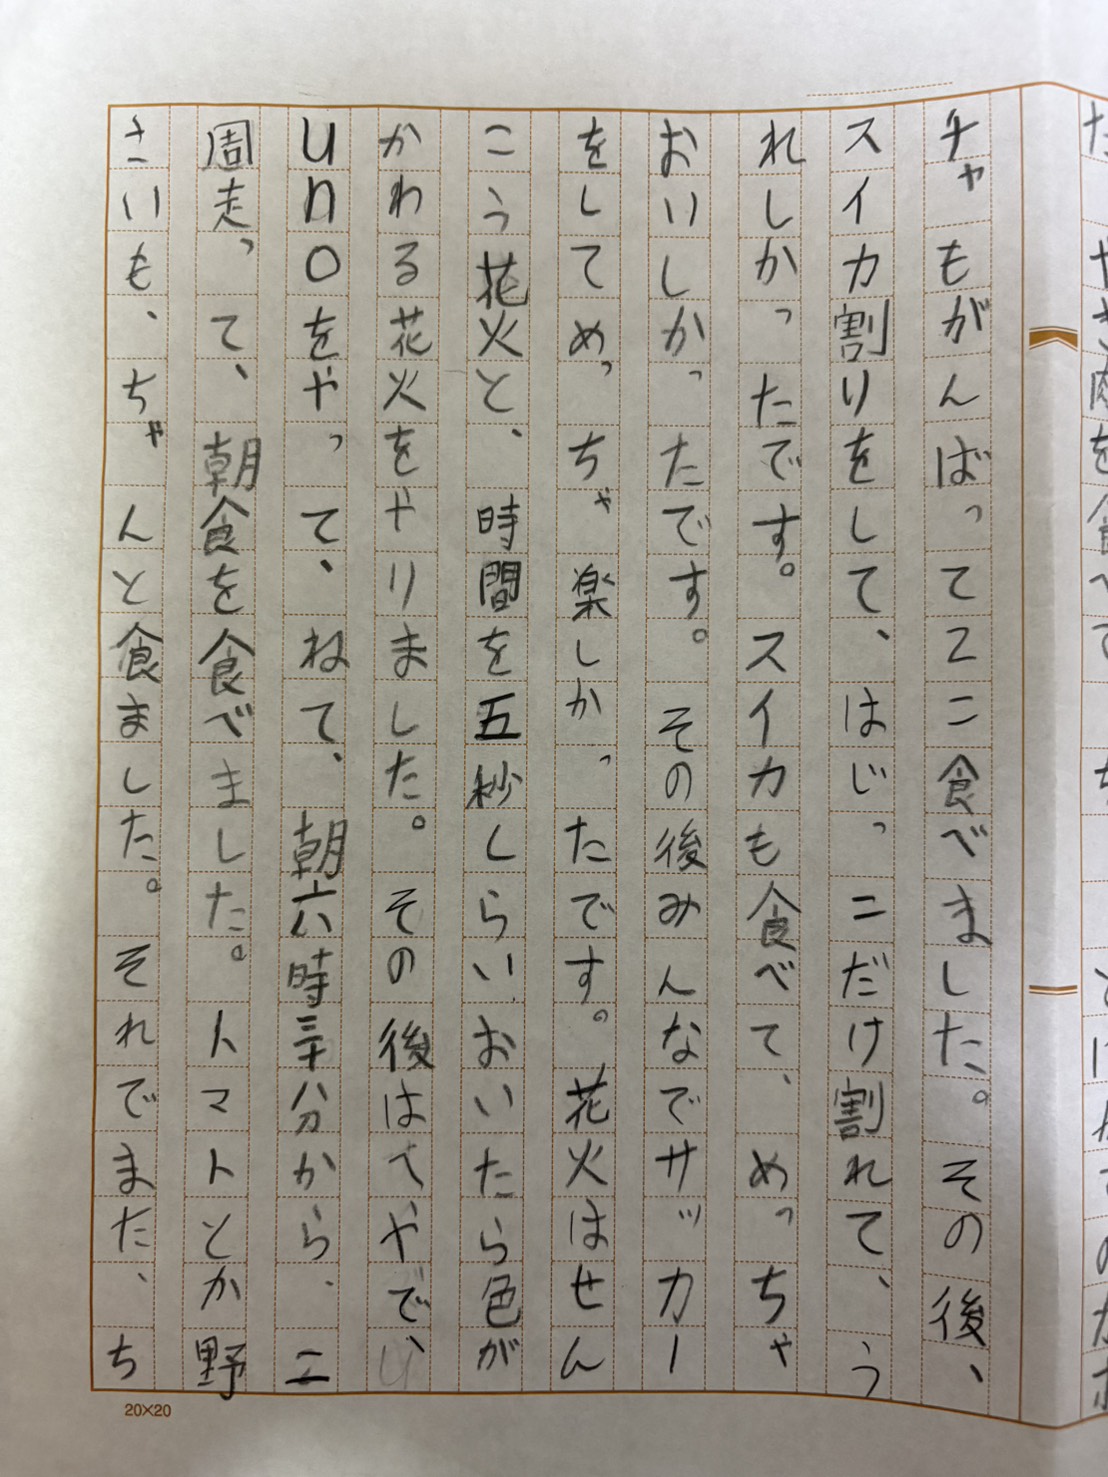 チャもがんばってて二こ食べました。その後、
スイカ割りをして、はじっこだけ割れて、う
れしかったです。スイカも食べて、めっちゃ
おいしかったです。その後みんなでサッカー
をしてめっちゃ楽しかったです。花火はせん
こう花火と、時間を五秒しらいおいたら色が
かわる花火をやりました。その後はへやで、
UnOをやって、ねて、朝六時三十分から、二
周走って、朝食を食べました。トマトとか野
さいも、ちゃんと食ました。それでまた、ち
20×20